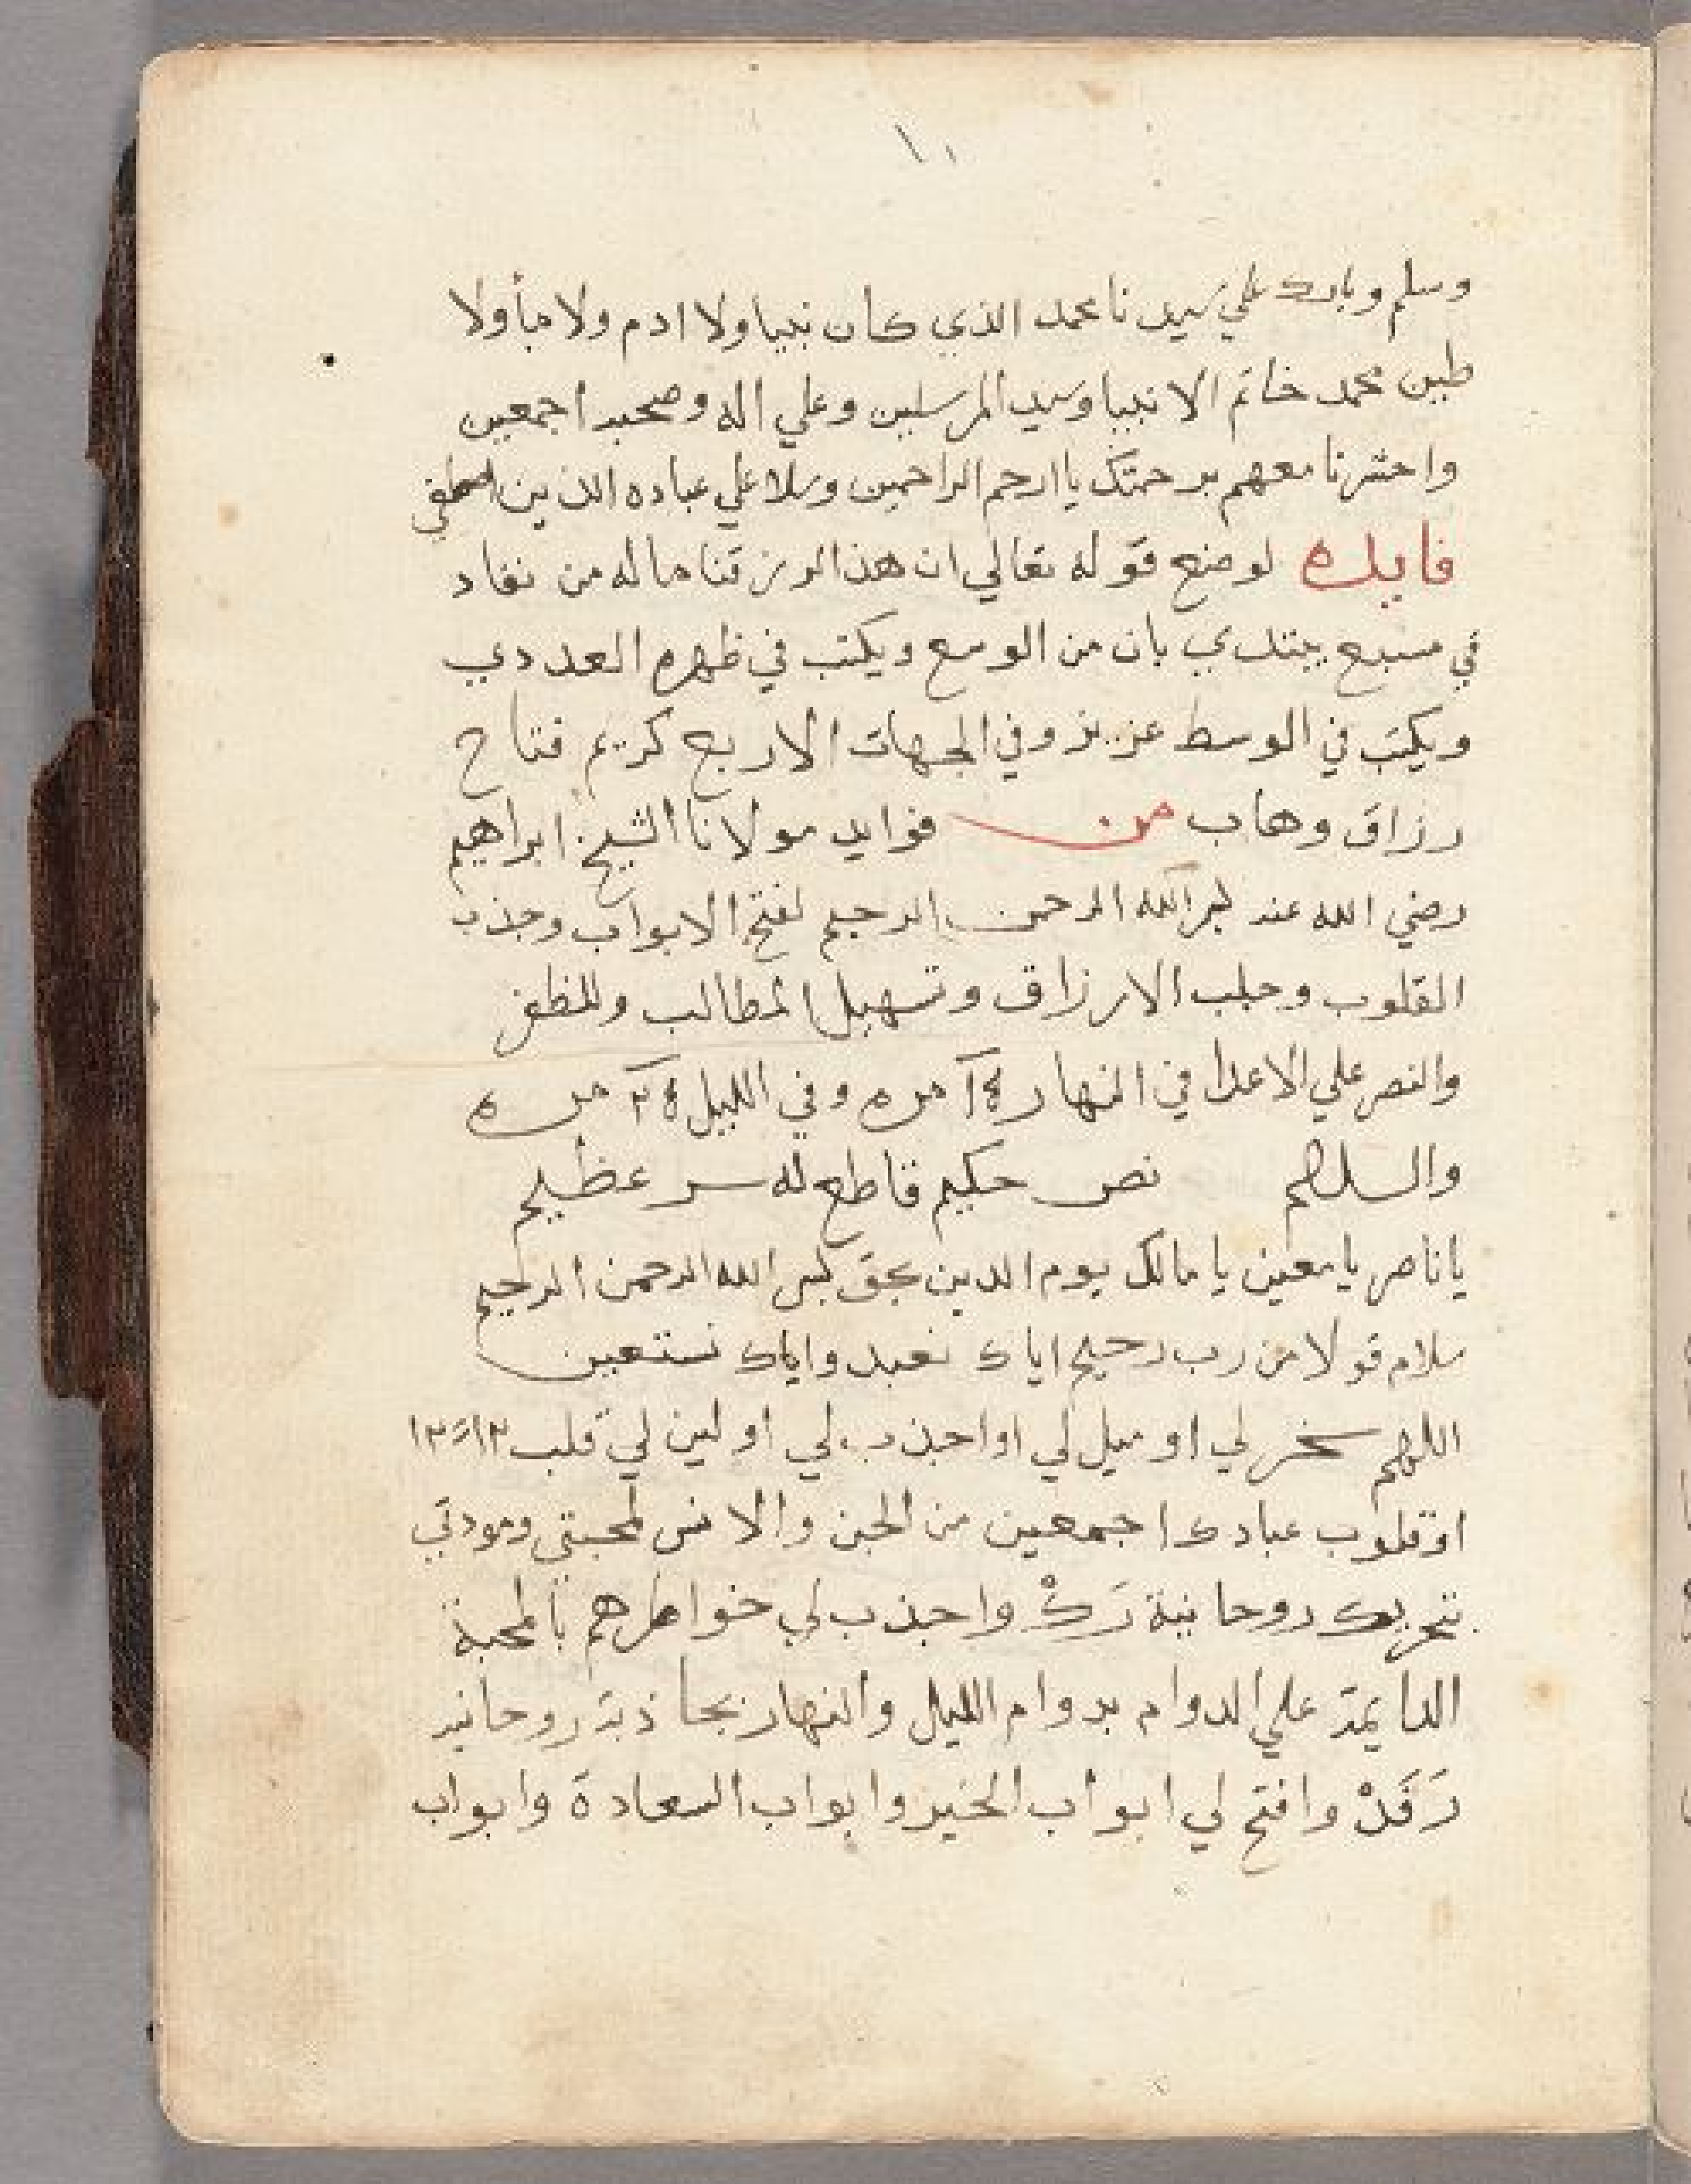 ١١
وسلم وبارك علي سيدنا محمد الذي كان نبيا ولا ادم ولا مأ ولا
طين محمد خاتم الانبيا وسيد المرسلين وعلي اله وصحبه اجمعين
واحشرنا معهم برحمتك يا ارحم الراحمين وسلام علي عباده الذين اصطفي
فايده لوضع قوله تعالي ان هذا لرزقنا ماله من نفاد
في مسبع يبتدي بان من الوسع ويكتب في ظهره العددي
ويكتب في الوسط عزيز وفي الجهات الاربع كريم فتاح
رزاق وهاب من فوايد مولانا الشيخ ابراهيم
رضي الله عنه بسم الله الرحمن الرحيم لفتح الابواب وجذب
القلوب وجلب الارزاق وتسهيل المطالب وللظفر
والنصر علي الاعدا في النهار مره وفي الليل مره
والسلام نص حكيم قاطع له سر عظيم
يا ناصر يا معين يا مالك يوم الدين بحق بسم الله الرحمن الرحيم
سلام قولا من رب رحيم اياك نعبد واياك نستعين
اللهم سخر لي او ميل لي او اجذب لي او لين لي قلب
او قلوب عبادك اجمعين من الجن والانس لمحبتي ومودتي
بتحريك روحانية رَكْ واجذب لي خواطرهم بالمحبة
الدايمة علي الدوام بدوام الليل والنهار بجاذبة روحانية
رَقَدْ وافتح لي ابواب الخير وابواب السعادة وابواب